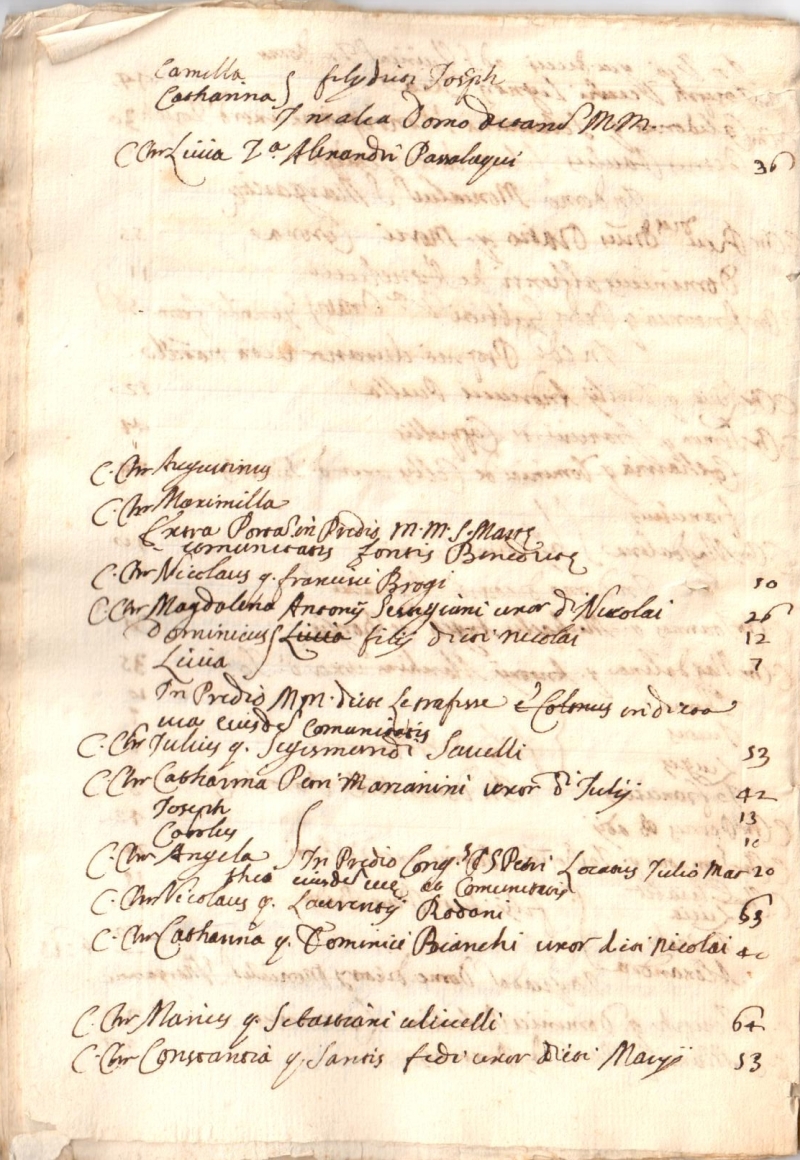 Camilla
Catharina } filij dicti Joseph
In alia Domo dictarū M M.
C. Chr Livia Alexandri 36
C. Chr Augustinus
C. Chr Maximilla
Extra Portā in Predio M. M. S. Marte
comunitatis fontis Benedicte
C. Chr Nicolaus q. francisci Brogi 50
C. Chr Magdalena Antonij uxor d. Nicolai 26
Dominicus } Livia filij dicti nicolai 12
Livia 7
In Predio M M. dicte Colonus in dicta
via eiusdē Comunitatis
C. Chr Julius q. Sigismundi Savelli 53
C. Chr Catharina Petri Marianini uxor d. Julij 42
Joseph 13
Carolus 10
C. Chr Angela } In Predio Cong. S. Petri Locatus Julio 20
eiusdē Comunitatis
C. Chr Nicolaus q. Laurentij Rodani 63
C. Chr Catharina q. Dominici Bianchi uxor dicti nicolai 40
C. Chr Marius q. Sebastiani ulivelli 64
C. Chr Constantia q. Santis fedi uxor dicti Marij 53